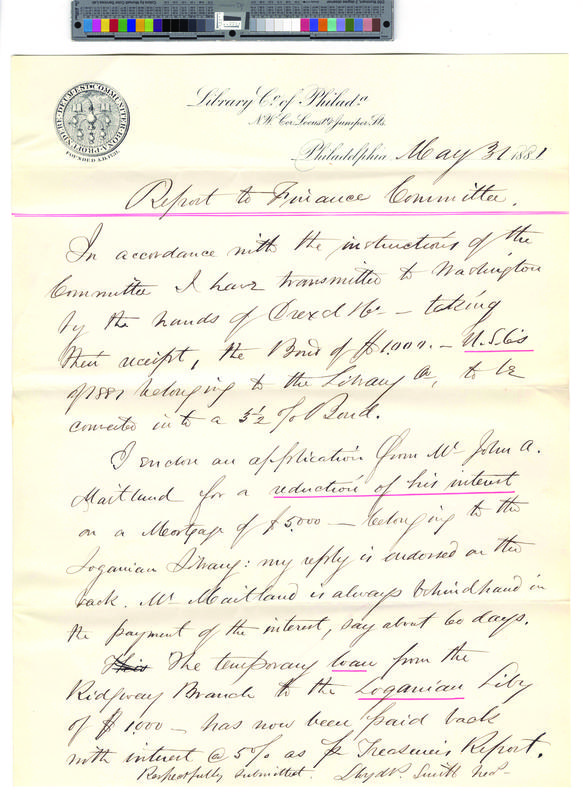 COMMUNITER BONA PROFUNDERE DEUM EST
FOUNDED A.D. 1731.
Library Co. of Philada.
N.W. Cor. Locust & Juniper Sts.
Philadelphia May 31 1881
Report to Finance Committee.
In accordance with the instructions of the
Committee I have transmitted to Washington
by the hands of Drexel & Co – taking
their receipt, the Bond of $1,000. – U.S. 6's
of 1881 belonging to the Library Co, to be
converted into a 3½ % Bond.
I enclose an application from Mr John A.
Maitland for a reduction of his interest
on a Mortgage of $5,000 – belonging to the
Loganian Library: my reply is endorsed on the
back. Mr Maitland is always behindhand in
the payment of the interest, say about 60 days.
This The temporary loan from the
Ridgway Branch to the Loganian Liby
of $1000 – has now been paid back
with interest @ 5% as pr Treasurer's Report.
Respectfully submitted. Lloyd P. Smith